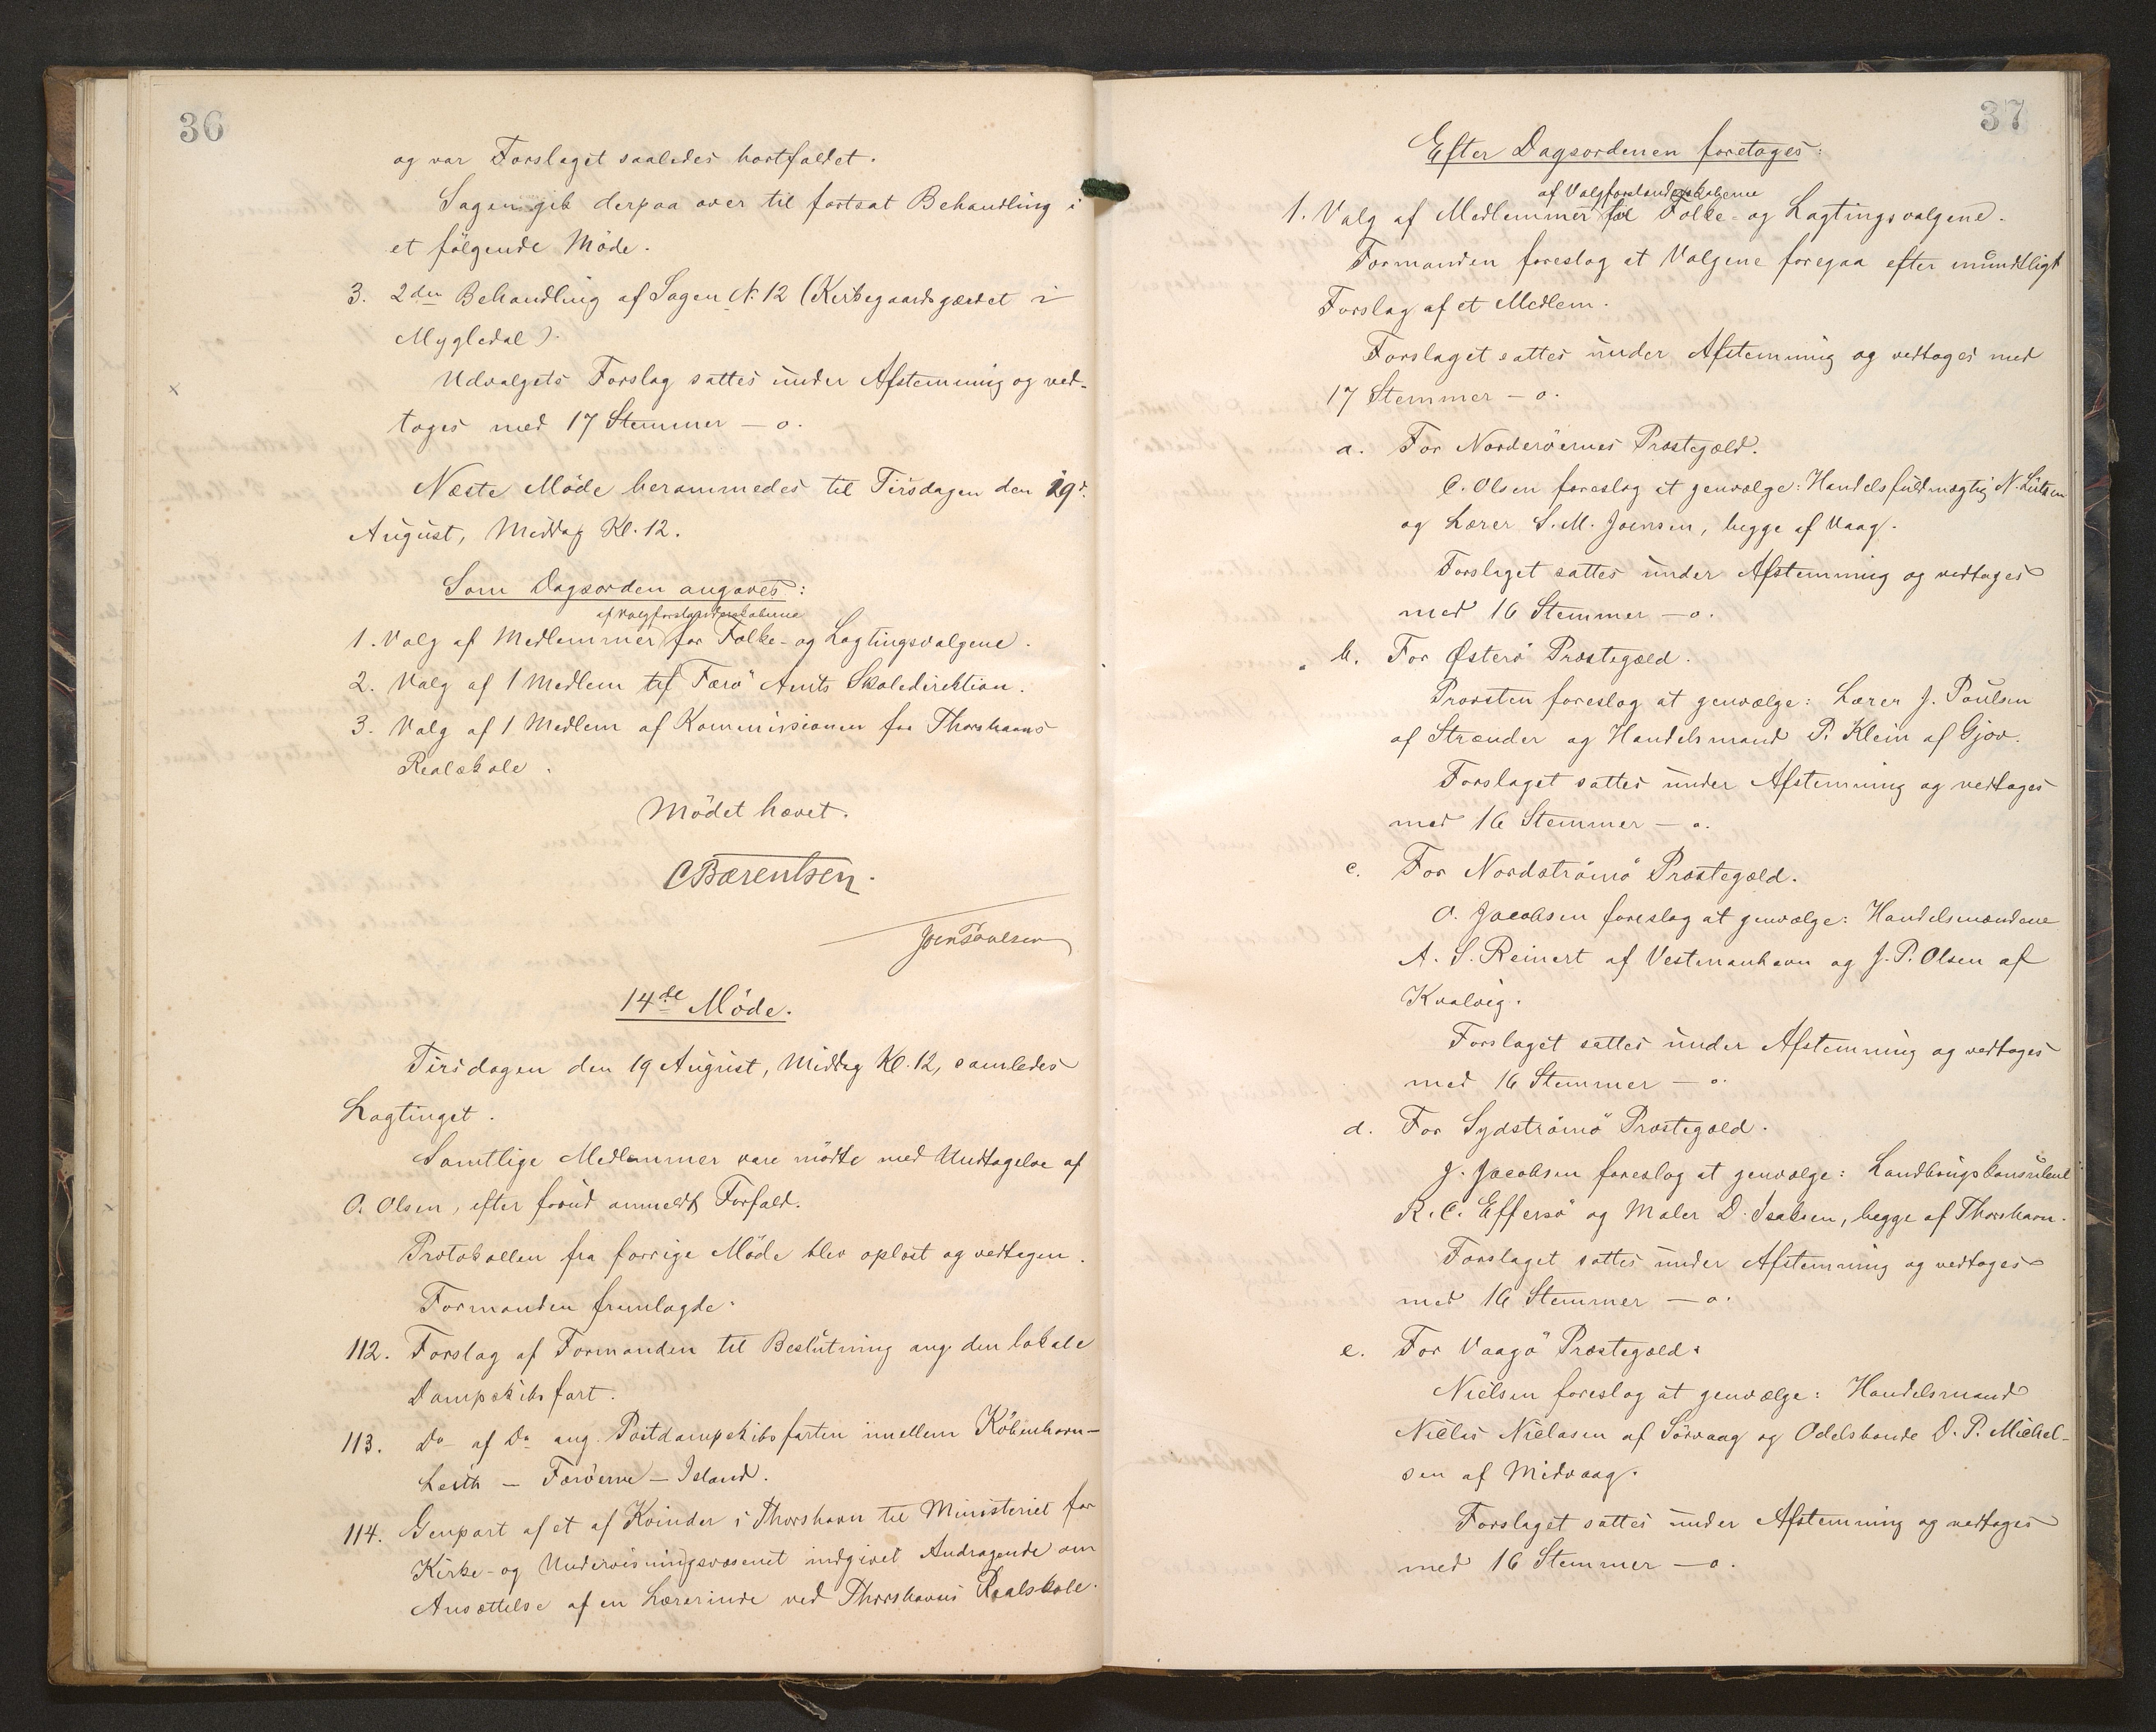 36
og var Forslaget saaledes bortfaldet.
Sagen gik derpaa over til fortsat Behandling i
et følgende Møde.
3. 2den Behandling af Sagen N. 12 (Kirkegaardsgærdet i
Mygledal).
Udvalgets Forslag sattes under Afstemning og ved-
toges med 17 Stemmer – o.
Næste Møde berammedes til Tirsdagen den 19d.
August, Middag Kl. 12.
Som Dagsorden angaves:
af Valgforstanderskaberne
1. Valg af Medlemmer for Folke- og Lagtingsvalgene.
2. Valg af 1 Medlem til Færö Amts Skoledirektion.
3. Valg af 1 Medlem af Kommissionen for Thorshavns
Realskole.
Mödet hævet.
CBærentsen.
Joen Poulsen
14de Möde.
Tirsdagen den 19 August, Middag Kl. 12, samledes
Lagtinget.
Samtlige Medlemmer vare mödte med Undtagelse af
O. Olsen, efter forud anmeldt Forfald.
Protokollen fra forrige Möde blev oplæst og vedtagen.
Formanden fremlagde:
112. Forslag af Formanden til Beslutning ang. den lokale
Dampskibsfart.
113. Do af Do ang. Postdampskibsfarten imellem Köbenhavn –
Leith – Færöerne – Island.
114. Genpart af et af Kvinder i Thorshavn til Ministeriet for
Kirke- og Undervisningsvæsenet indgivet Andragende om
Ansættelse af en Lærerinde ved Thorshavns Realskole.
37
Efter Dagsordenen foretages:
af Valgforstanderskaberne
1. Valg af Medlemmer for Folke- og Lagtingsvalgene.
Formanden foreslog at Valgene foregaa efter mundtligt
Forslag af et Medlem.
Forslaget sattes under Afstemning og vedtoges med
17 Stemmer – o.
a. For Norderöernes Præstegæld.
C. Olsen foreslog at genvælge: Handelsfuldmægtig N. Lützen
og Lærer S. M. Joensen, begge af Vaag.
Forslaget sattes under Afstemning og vedtoges
med 16 Stemmer – o.
b. For Østerö Præstegæld.
Provsten foreslog at genvælge: Lærer J. Poulsen
af Strænder og Handelsmand P. Klein af Gjov.
Forslaget sattes under Afstemning og vedtoges
med 16 Stemmer – o.
c. For Nordströmö Præstegæld.
O. Jacobsen foreslog at genvælge: Handelsmændene
A. S. Reinert af Vestmanhavn og J. P. Olsen af
Kvalvig.
Forslaget sattes under Afstemning og vedtoges
med 16 Stemmer – o.
d. For Sydströmö Præstegæld.
J. Jacobsen foreslog at genvælge: Landbrugskonsulent
R. C. Effersö og Maler D. Isaksen, begge af Thorshavn.
Forslaget sattes under Afstemning og vedtoges
med 16 Stemmer – o.
e. For Vaagö Præstegæld:
Nielsen foreslog at genvælge: Handelsmand
Niels Nielasen af Sörvaag og Odelsbonde D. P. Michel-
sen af Midvaag.
Forslaget sattes under Afstemning og vedtoges
med 16 Stemmer – o.